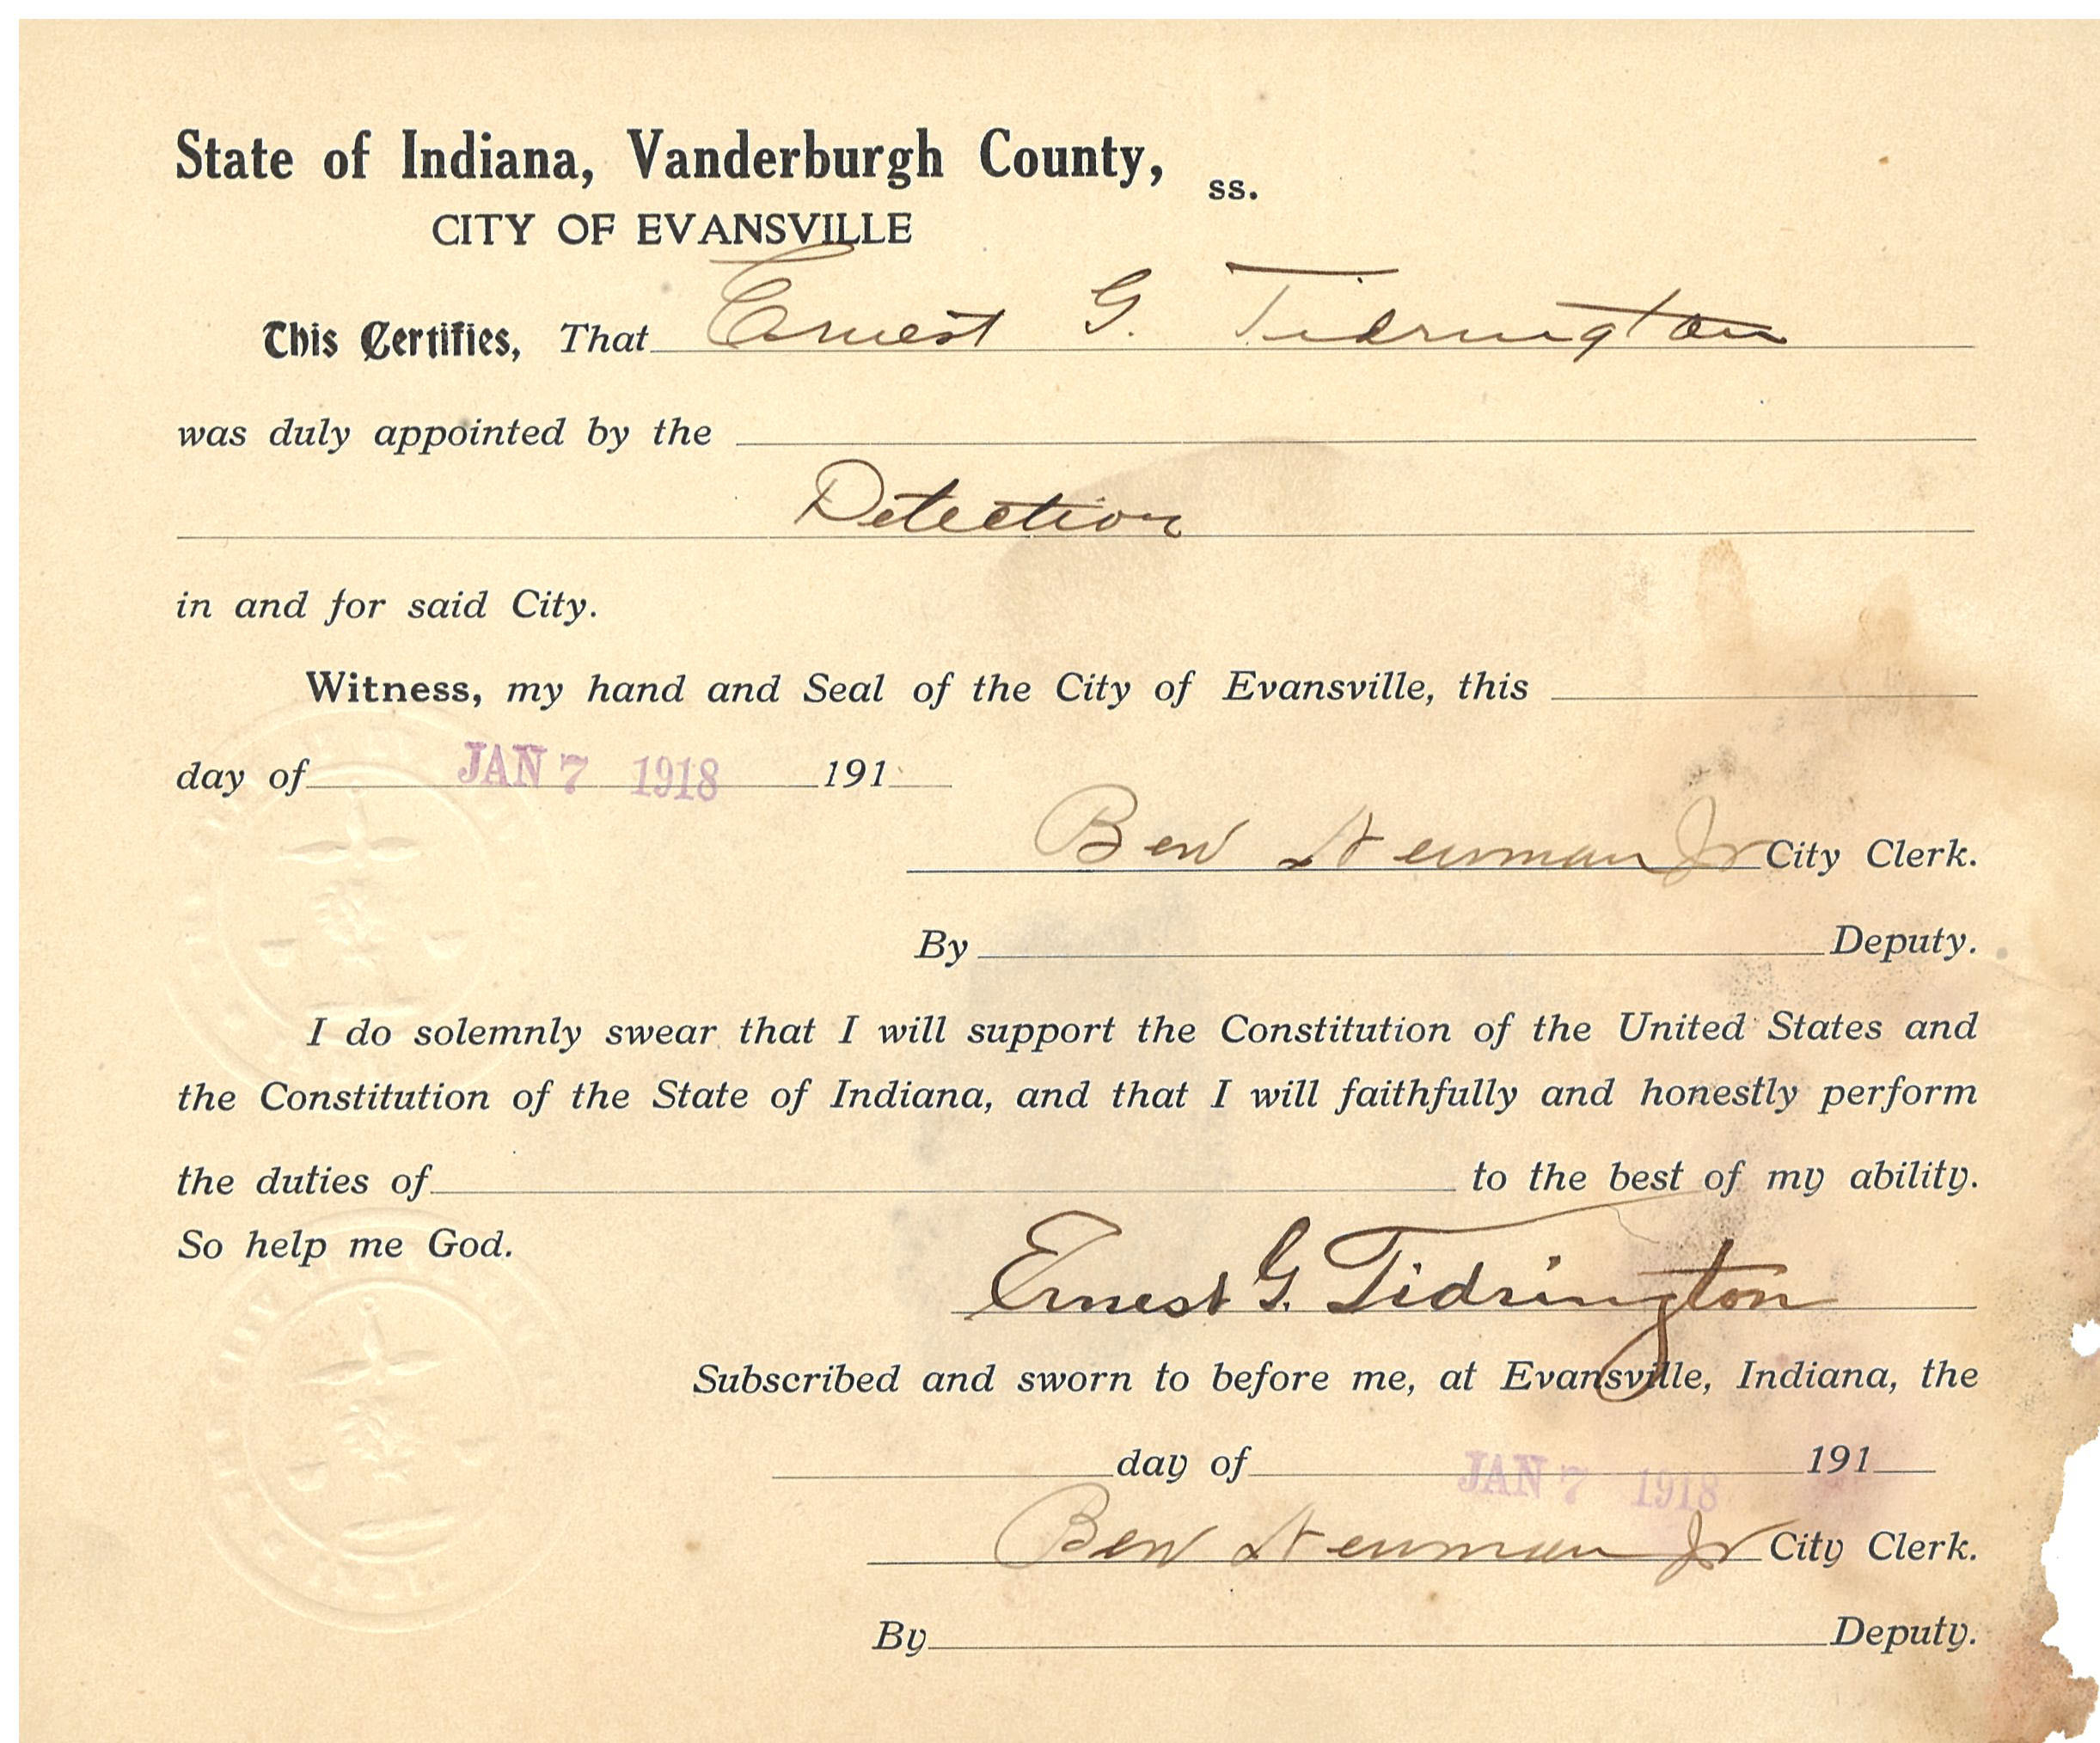 State of Indiana, Vanderburgh County, ss.
CITY OF EVANSVILLE
This Certifies, That Ernest G. Tidrington
was duly appointed by the
Detection
in and for said City.
Witness, my hand and Seal of the City of Evansville, this
day of JAN 7 1918 191
Ben Newman Jr City Clerk.
By Deputy.
I do solemnly swear that I will support the Constitution of the United States and
the Constitution of the State of Indiana, and that I will faithfully and honestly perform
the duties of to the best of my ability.
So help me God.
Ernest G. Tidrington
Subscribed and sworn to before me, at Evansville, Indiana, the
day of JAN 7 1918 191
Ben Newman Jr City Clerk.
By Deputy.